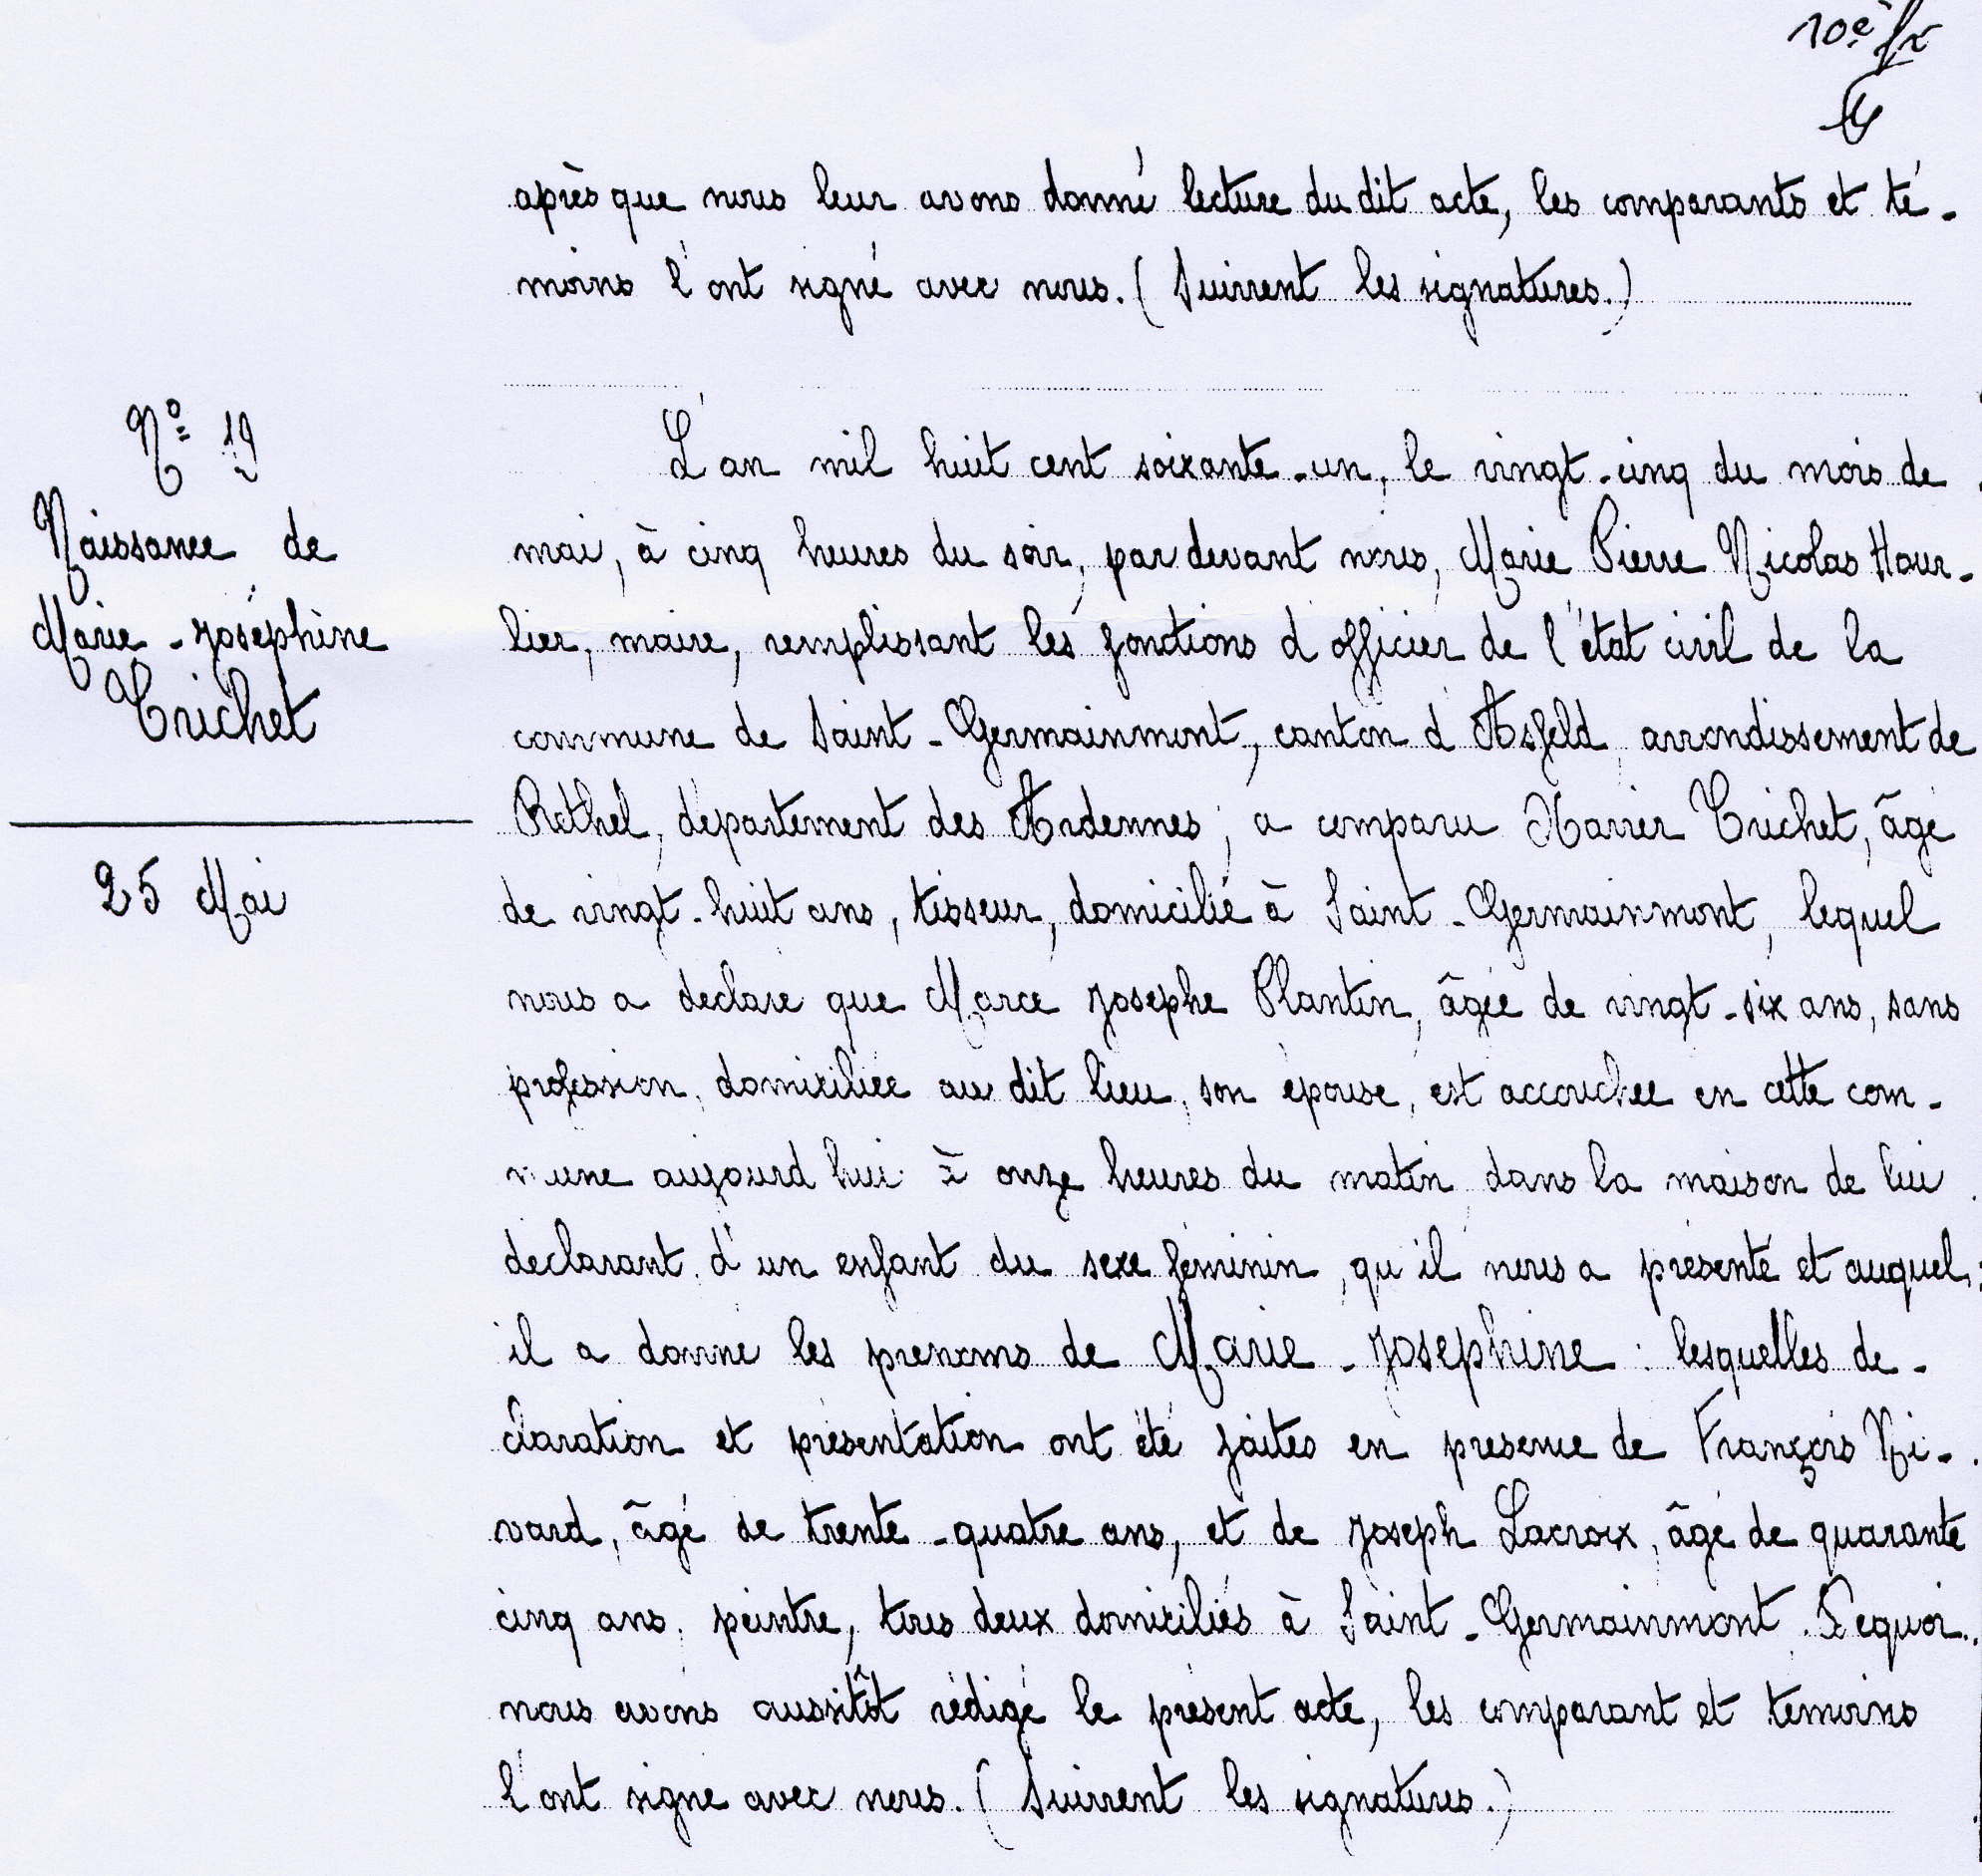 10e fx
après que nous leur avons donné lecture du dit acte, les comparants et té-
moins l'ont signé avec nous. (Suivent les signatures.)
No 19
Naissance de
Marie-Joséphine
Trichet
25 Mai
L'an mil huit cent soixante-un, le vingt-cinq du mois de
mai, à cinq heures du soir, par devant nous, Marie Pierre Nicolas Hour-
lier, maire, remplissant les fonctions d'officier de l'état civil de la
commune de Saint-Germainmont, canton d'Asfeld, arrondissement de
Rethel, département des Ardennes; a comparu Xavier Trichet, âgé
de vingt-huit ans, tisseur, domicilié à Saint-Germainmont, lequel
nous a declaré que Marce Josephe Plantin, âgée de vingt-six ans, sans
profession, domiciliée au dit lieu, son épouse, est accouchée en cette com-
mune aujourd'hui à onze heures du matin, dans la maison de lui
declarant, d'un enfant du sexe féminin, qu'il nous a présenté et auquel
il a donné les prénoms de Marie-Josephine: lesquelles de-
claration et présentation ont été faites en présence de François Ni-
vard, âgé de trente-quatre ans, et de Joseph Lacroix, âgé de quarante
cinq ans, peintre, tous deux domiciliés à Saint-Germainmont. De quoi
nous avons aussitôt rédigé le présent acte, les comparant et témoins
l'ont signé avec nous. (Suivent les signatures.)